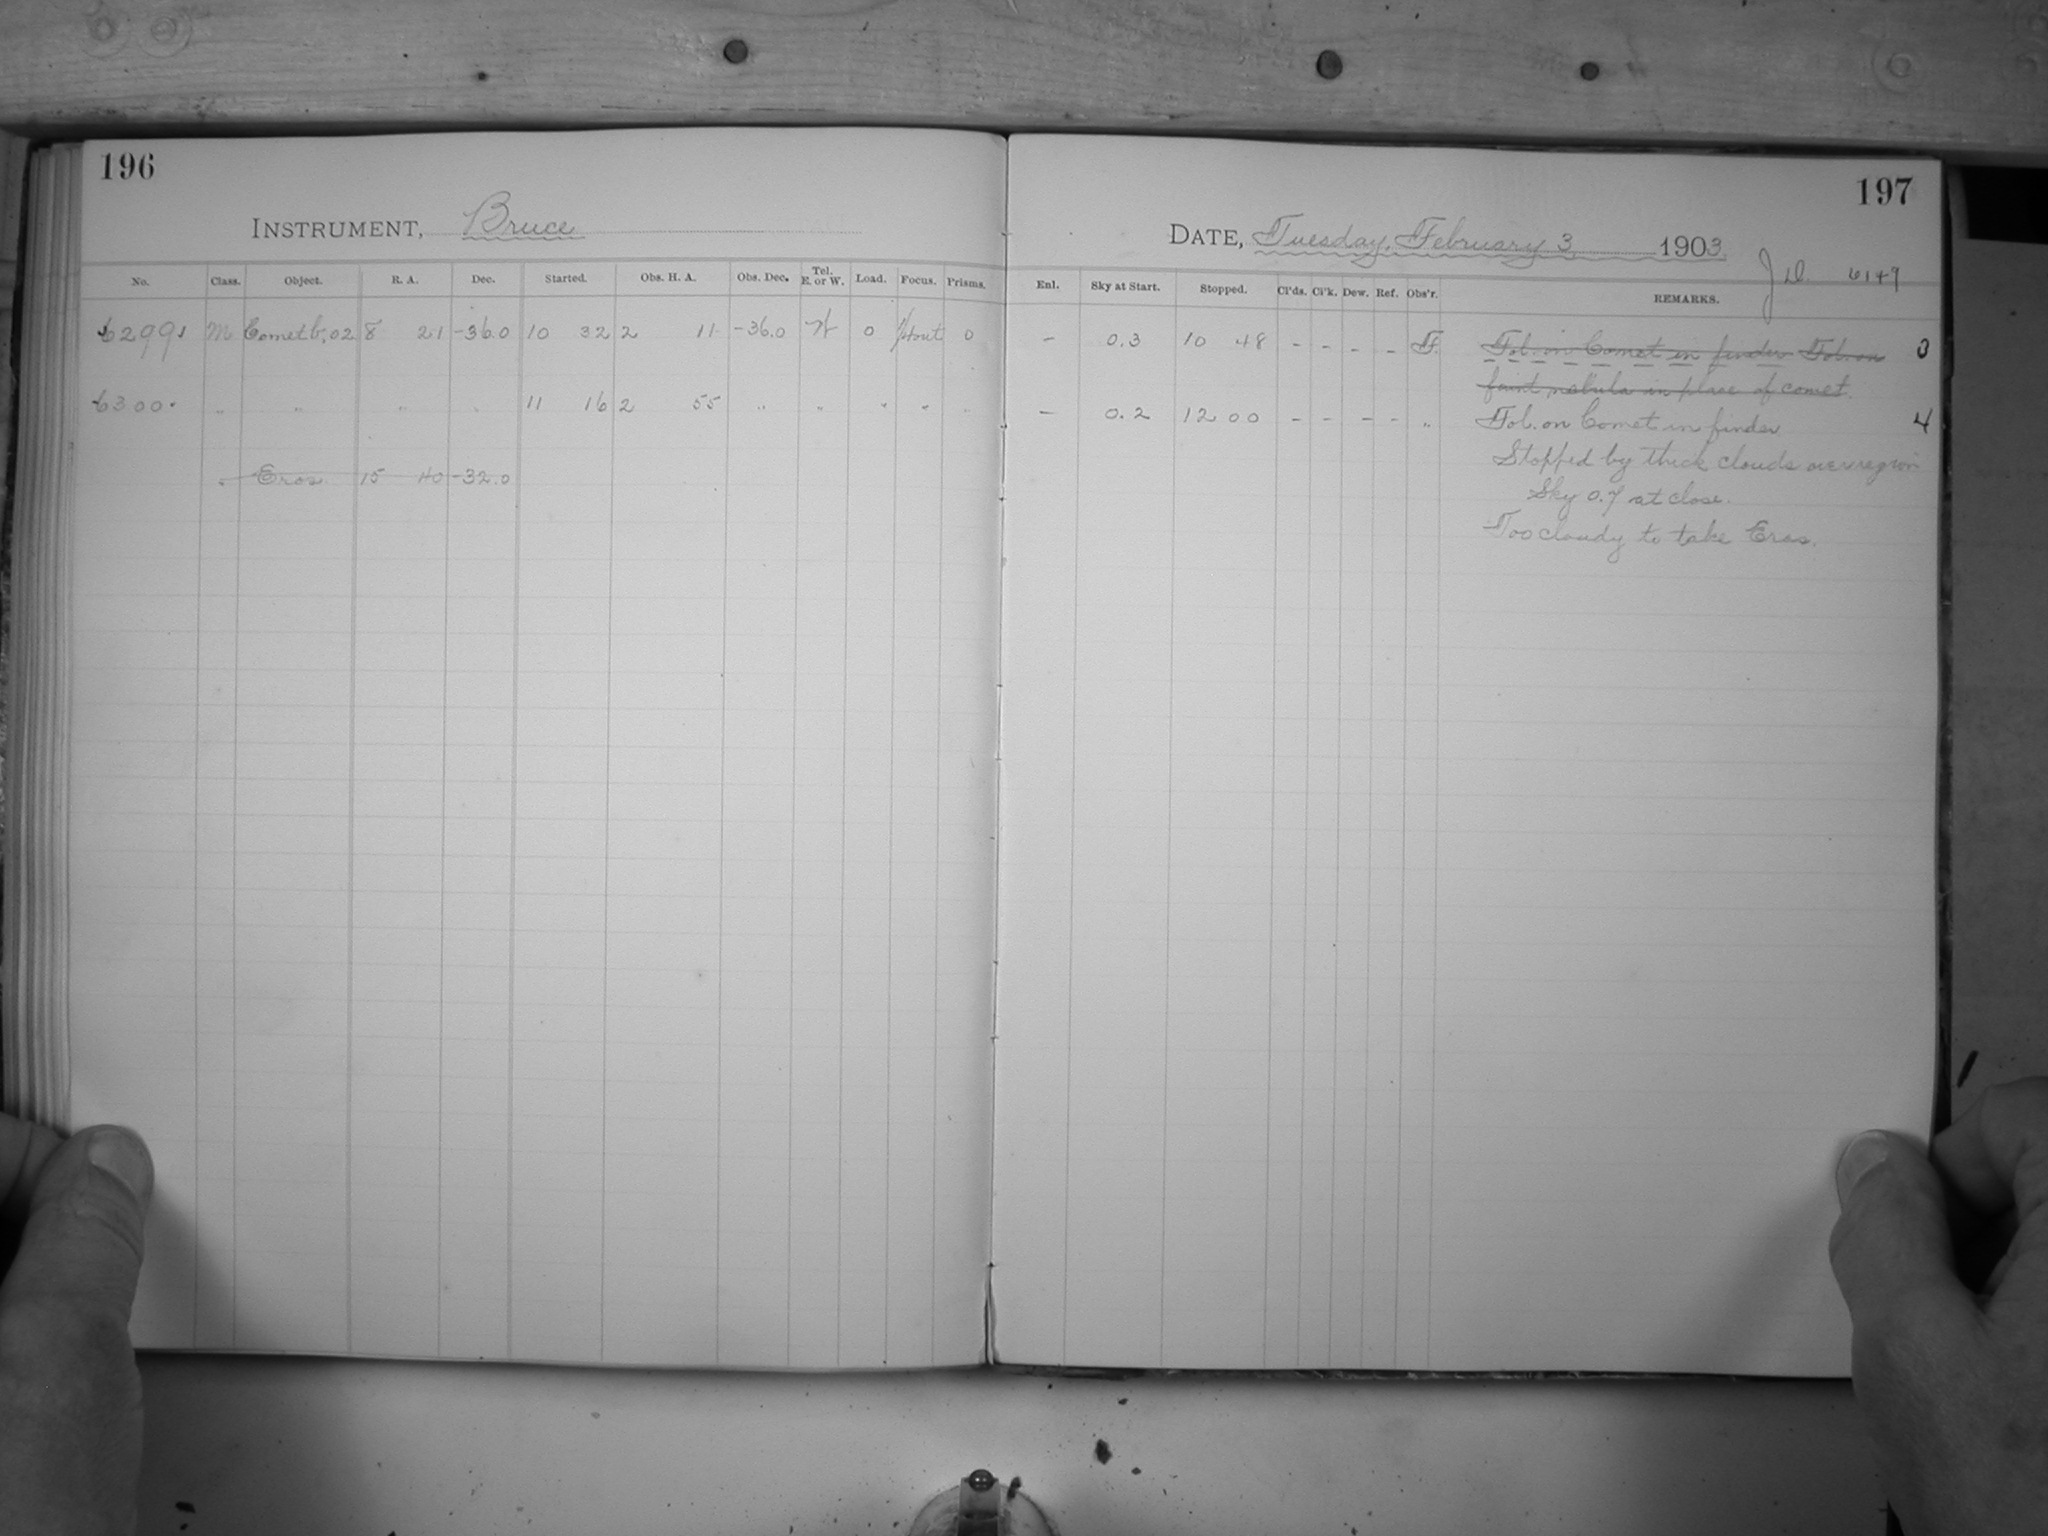 196
INSTRUMENT, Bruce
No. Class. Object. R. A. Dec. Started. Obs. H. A. Obs. Dec. Tel. E. or W. Load. Focus. Prisms.
6299 M Comet b, 02 8 21 -36.0 10 32 2 11 -36.0 W 0 0
6300 " " " " 11 16 2 55 " " " " "
" Eros 15 40 -32.0
197
DATE, Tuesday, February 3, 1903.
J D 6149
Enl. Sky at Start. Stopped. Cl'ds. Cl'k. Dew. Ref. Obs'r. REMARKS.
- 0.3 10 48 - - - - F. Fol. on Comet in finder Fol. on 3
faint nebula in place of comet.
- 0.2 12 00 - - - - " Fol. on Comet in finder 4
Stopped by thick clouds over region
Sky 0.7 at close.
Too cloudy to take Eros.